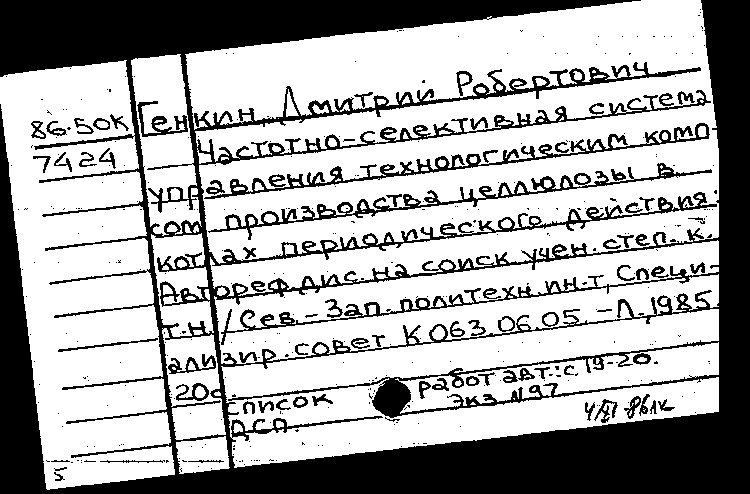 86-50К Генкин, Дмитрий Робертович
7424 Частотно-селективная система
управления технологическим комп-
сом производства целлюлозы в
котлах периодического действия:
Автореф. дис. на соиск. учен. степ. к.
т.н. / Сев.-Зап. политехн. ин-т, Специ-
ализир. совет К 063.06.05. - Л., 1985.
20с.
Список работ авт.: с. 19-20.
ДСП. Экз. N 97
4/XI-86
5